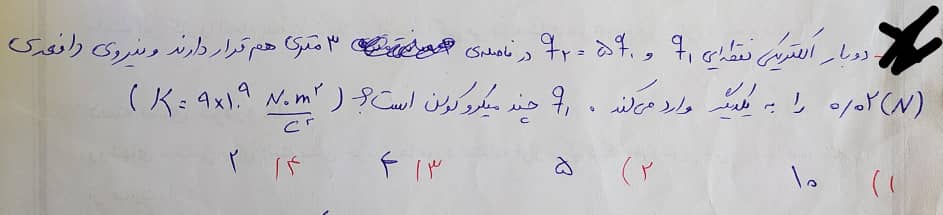 - دو بار الکتریکی نقطه‌ای q₁ و q₂ = ۵q₁ در فاصله‌ی ۳ متری هم قرار دارند و نیروی دافعه‌ی
۰/۰۲ (N) را به یکدیگر وارد می‌کند . q₁ چند میکروکولن است؟ ( K = ۹×۱۰⁹ N.m²/C² )
۱) ۱۰ ۲) ۵ ۳) ۴ ۴) ۲